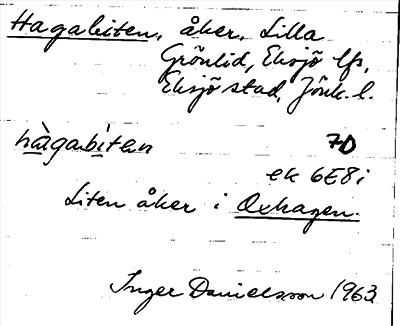 Hagabiten, åker, Lilla
Grönlid, Eksjö lfs,
Eksjö stad, Jönk. l.
hàgabìten 7D
ek 6E8i
Liten åker i Oxhagen.
Inger Danielsson 1963